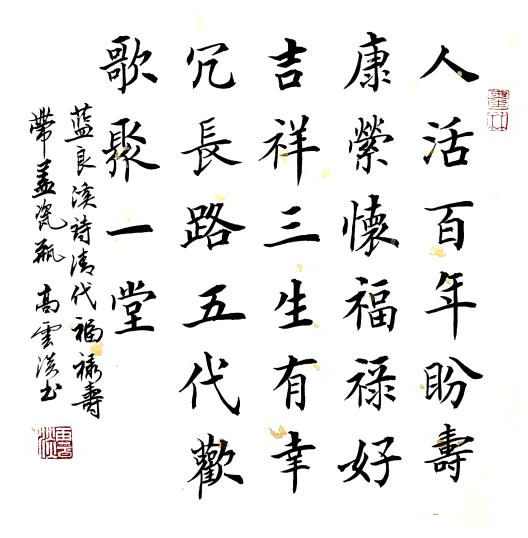 人活百年盼壽
康縈懷福禄好
吉祥三生有幸
冗長路五代歡
歌聚一堂
藍良溪詩清代福禄壽
帶盖瓷瓶 高雲书